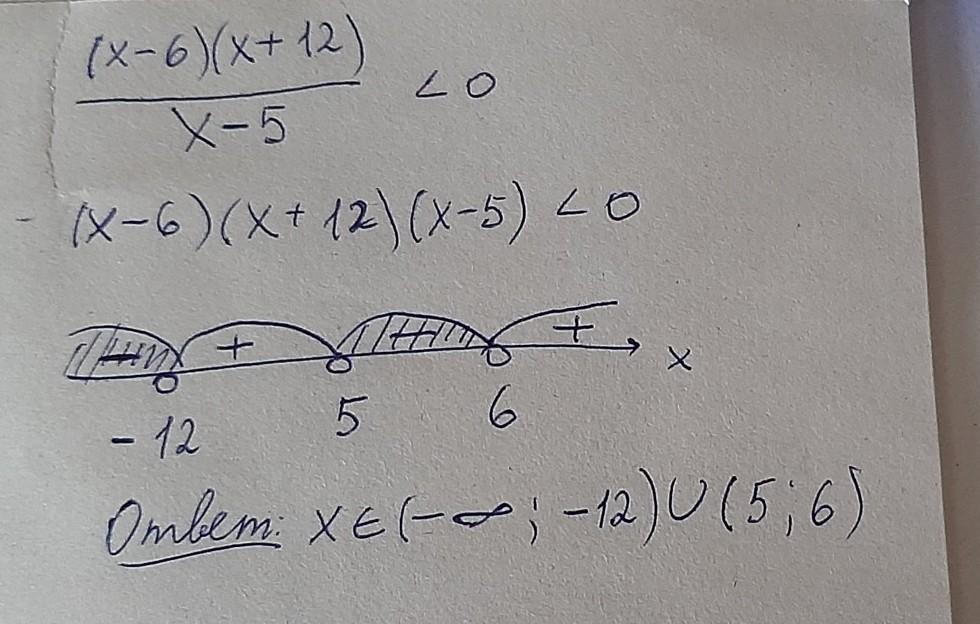 (x-6)(x+12)
x-5
<0
(x-6)(x+12)(x-5) <0
- + - + x
-12 5 6
Ответ: x∈(-∞; -12)∪(5;6)